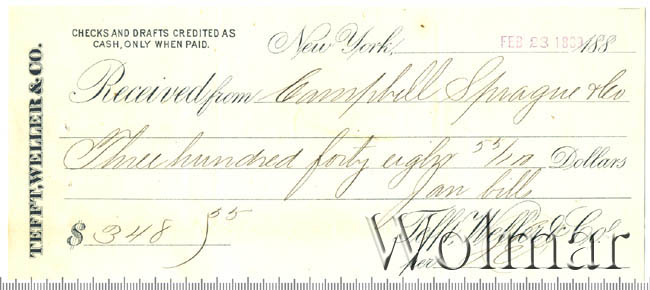 TEFFT, WELLER & CO.
CHECKS AND DRAFTS CREDITED AS
CASH, ONLY WHEN PAID.
New York, FEB 23 188
Received from Campbell Sprague & Co
Three hundred forty eight 55/ Dollars
Jan bills
$ 348 55
Tefft, Weller & Co.
per
Wolmar